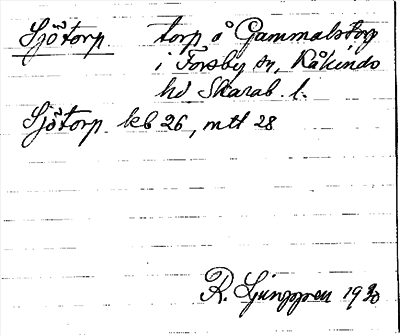 Sjötorp. torp å Gammalstorp
i Forsby sn, Kåkinds
hd Skarab. l.
Sjötorp kb 26, mtl 28
R. Ljunggren 1930